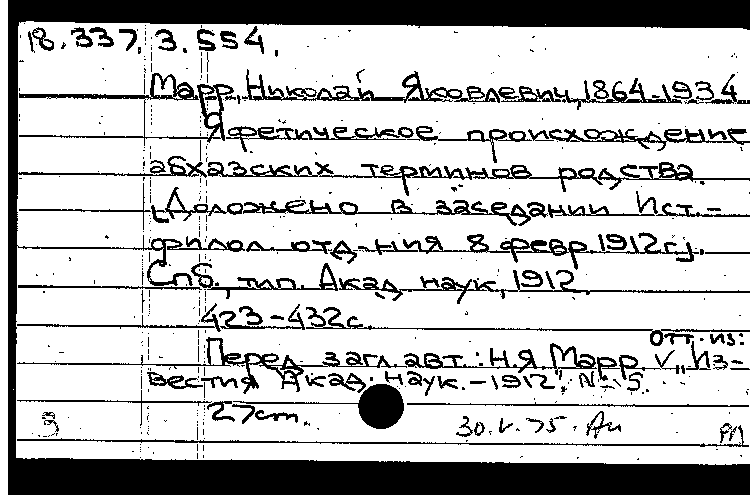 18.337.3.554.
Марр, Николай Яковлевич, 1864-1934
Яфетическое происхождение
абхазских терминов родства.
[Доложено в заседании Ист.-
филол. отд-ния 8 февр. 1912 г.].
Спб., тип. Акад. наук, 1912.
423-432 с.
Отт. из:
Перед загл. авт.: Н.Я. Марр. „Из-
вестия Акад. наук. - 1912", № 5.
27 cm.
30.V.75.